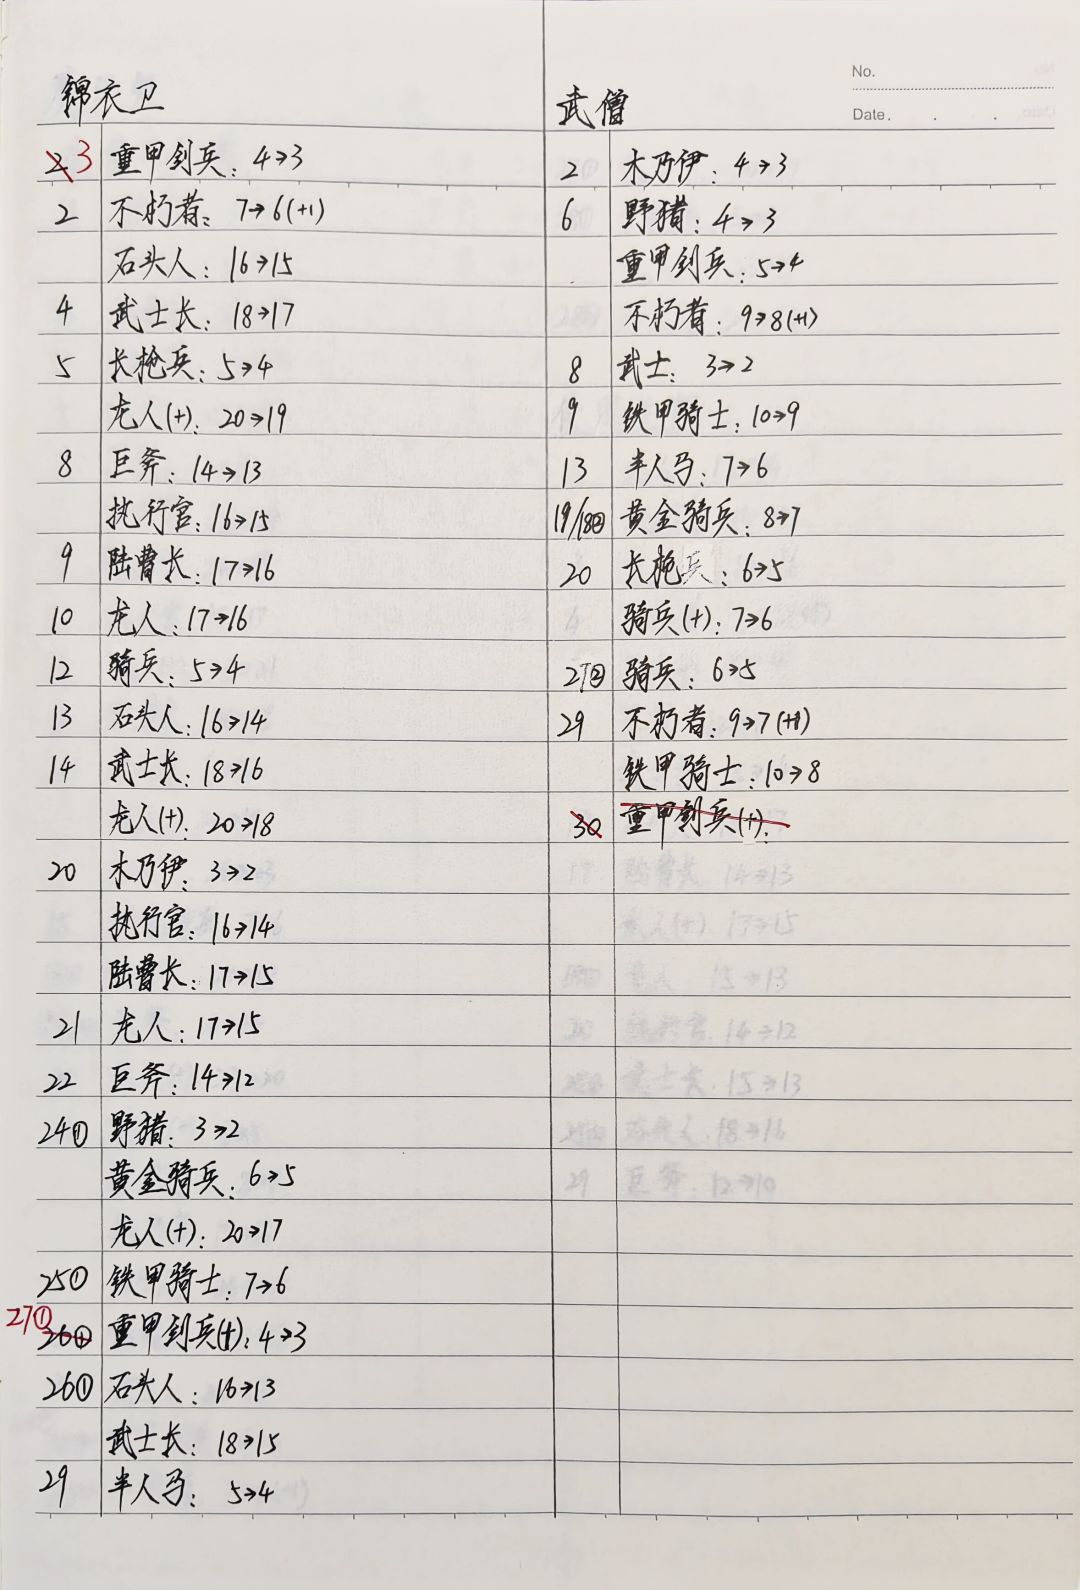 锦衣卫
3 重甲剑兵：4→3
2 不朽者：7→6(+1)
石头人：16→15
4 武士长：18→17
5 长枪兵：5→4
龙人(+)：20→19
8 巨斧：14→13
执行官：16→15
9 陆曹长：17→16
10 龙人：17→16
12 骑兵：5→4
13 石头人：16→14
14 武士长：18→16
龙人(+)：20→18
20 木乃伊：3→2
执行官：16→14
陆曹长：17→15
21 龙人：17→15
22 巨斧：14→12
24① 野猪：3→2
黄金骑兵：6→5
龙人(+)：20→17
25① 铁甲骑士：7→6
27① 重甲剑兵(+)：4→3
26① 石头人：16→13
武士长：18→15
29 半人马：5→4
No.
Date. . .
武僧
2 木乃伊：4→3
6 野猪：4→3
重甲剑兵：5→4
不朽者：9→8(+1)
8 武士：3→2
9 铁甲骑士：10→9
13 半人马：7→6
19/18② 黄金骑兵：8→7
20 长枪兵：6→5
骑兵(+)：7→6
27② 骑兵：6→5
29 不朽者：9→7(+1)
铁甲骑士：10→8
30 重甲剑兵(+)：